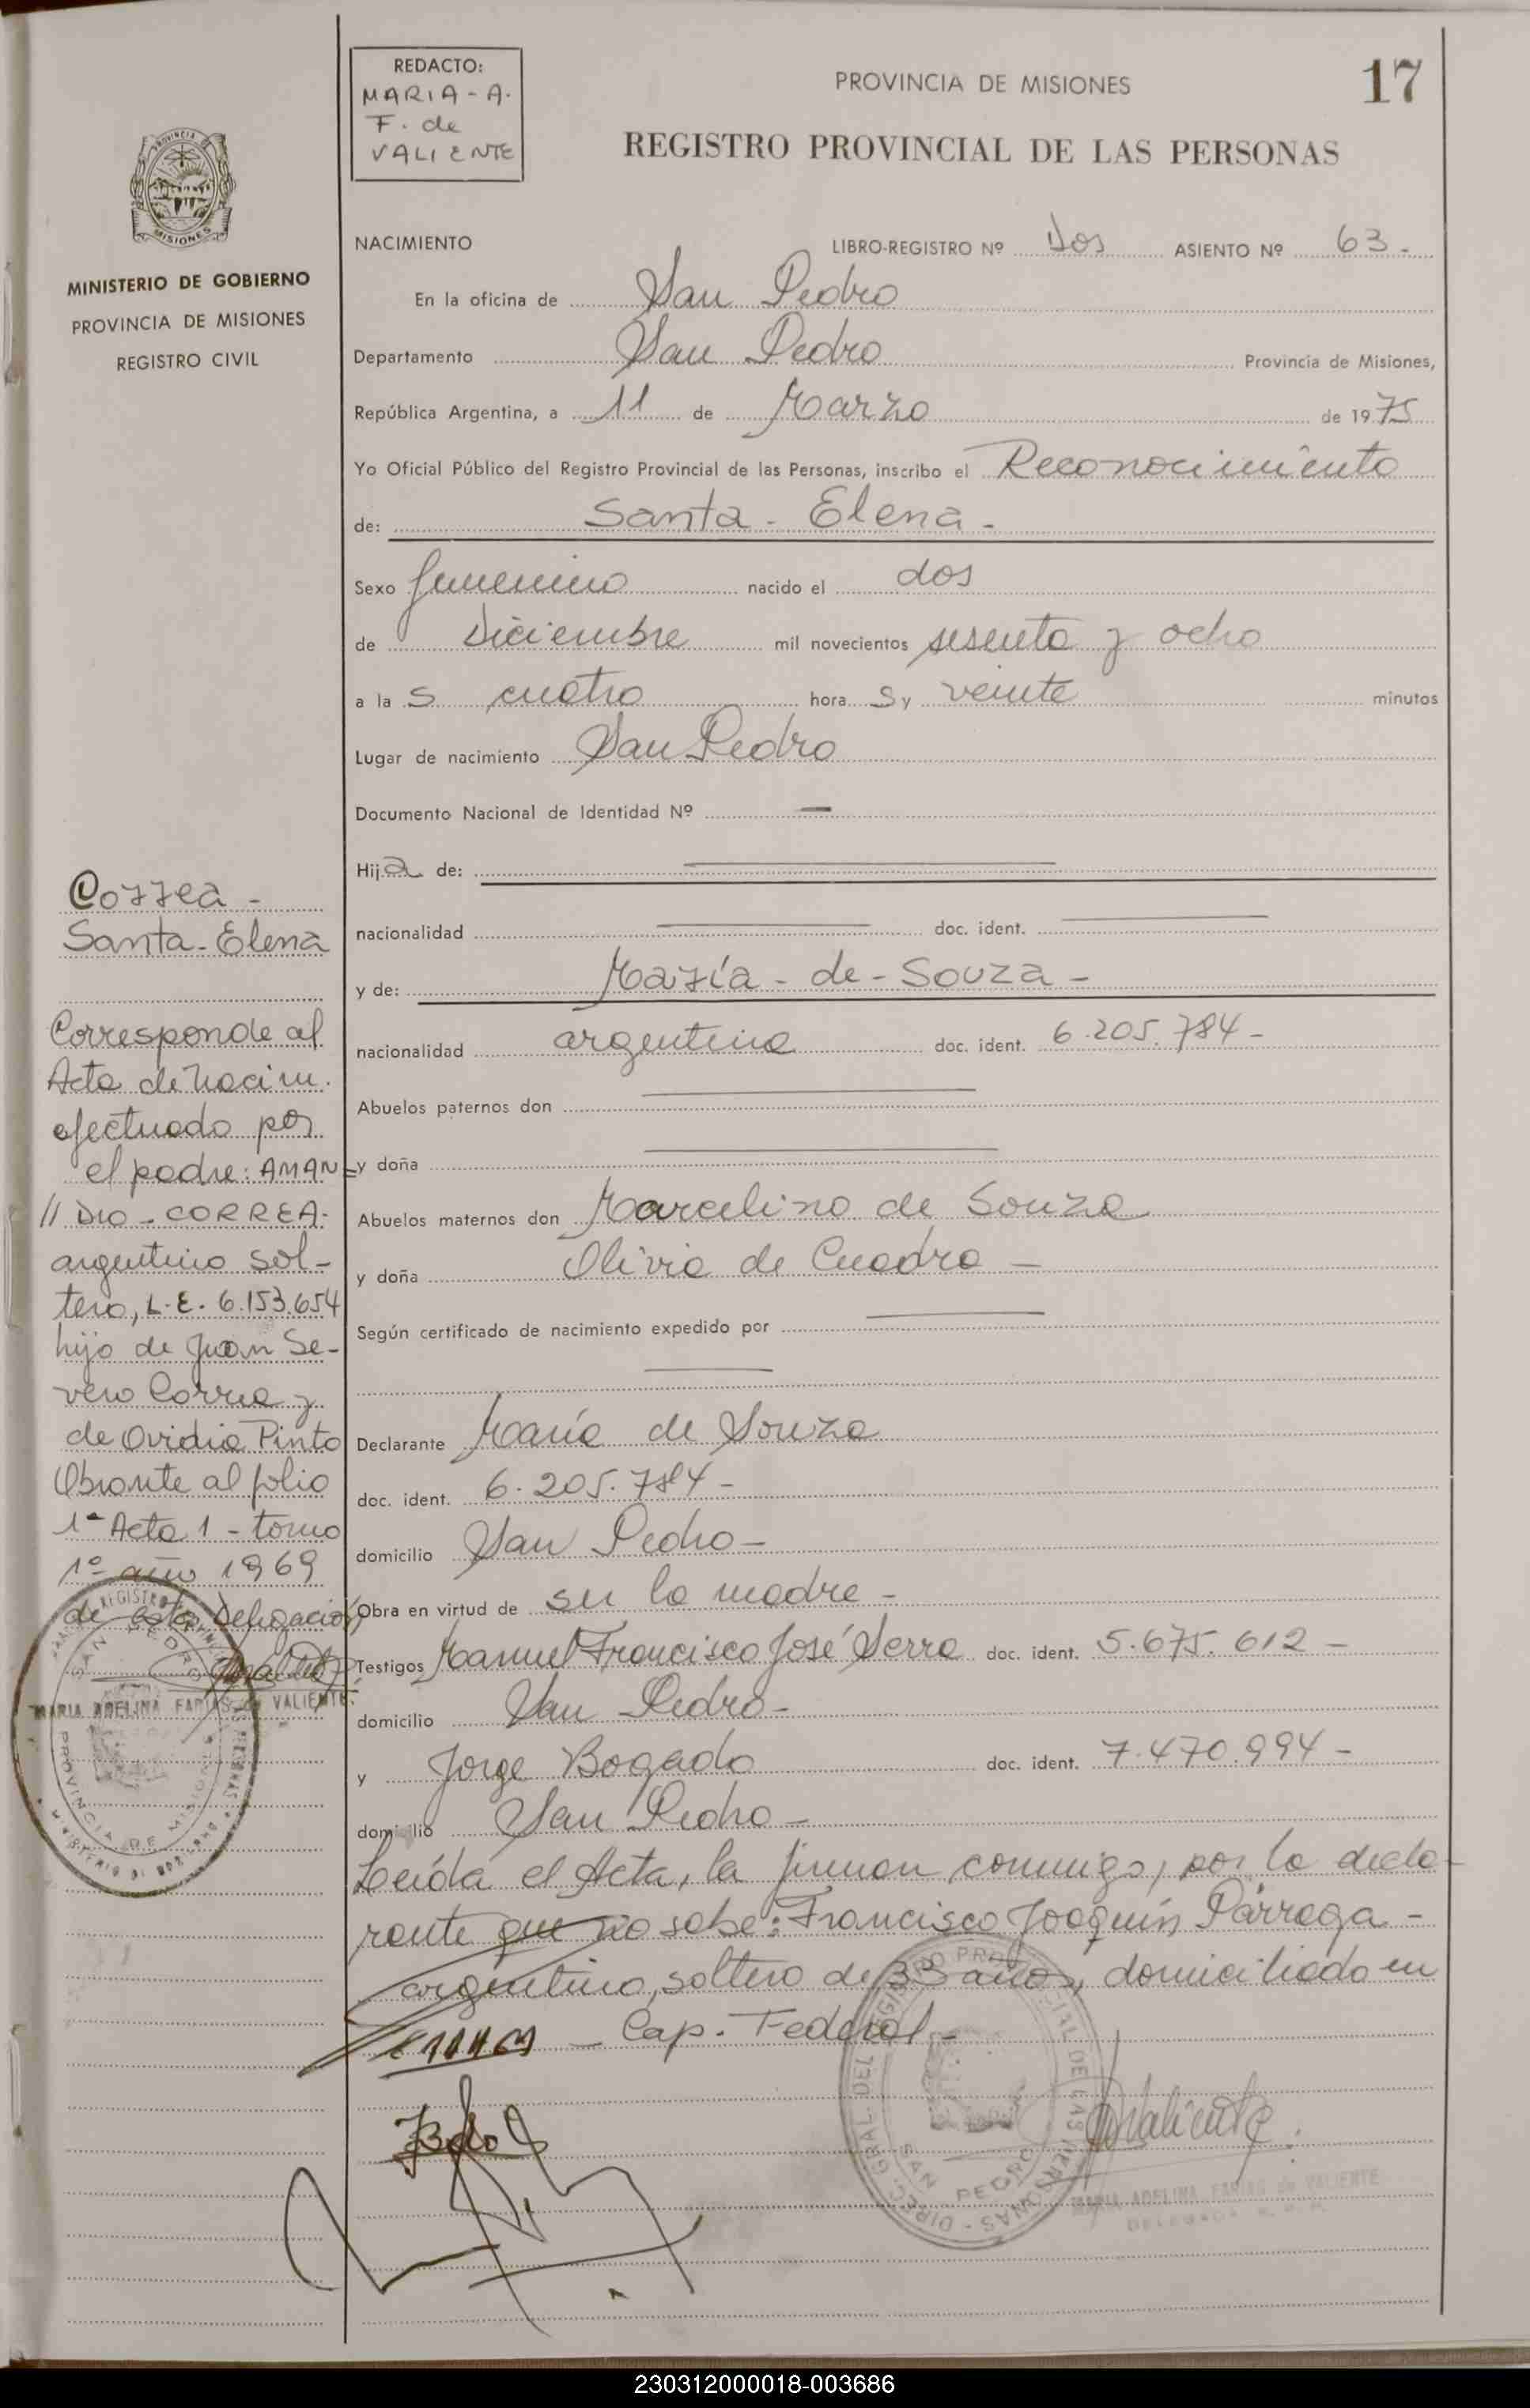 REDACTO:
MARIA - A.
F. de
VALIENTE
PROVINCIA DE MISIONES
17
REGISTRO PROVINCIAL DE LAS PERSONAS
PROVINCIA
MISIONES
MINISTERIO DE GOBIERNO
PROVINCIA DE MISIONES
REGISTRO CIVIL
NACIMIENTO LIBRO-REGISTRO Nº Dos ASIENTO Nº 63-
En la oficina de San Pedro
Departamento San Pedro Provincia de Misiones,
República Argentina, a 11 de Marzo de 1975
Yo Oficial Público del Registro Provincial de las Personas, inscribo el Reconocimiento
de: Santa - Elena -
Sexo femenino nacido el dos
de Diciembre mil novecientos sesenta y ocho
a la s cuatro hora s y veinte minutos
Lugar de nacimiento San Pedro
Documento Nacional de Identidad Nº —
Hija de:
nacionalidad doc. ident.
y de: María - de - Souza -
nacionalidad argentina doc. ident. 6.205.784-
Abuelos paternos don
y doña
Abuelos maternos don Marcelino de Souza
y doña Olivia de Cuadro -
Según certificado de nacimiento expedido por
Declarante María de Souza
doc. ident. 6.205.784-
domicilio San Pedro-
Obra en virtud de ser la madre -
Testigos Manuel Francisco José Serra doc. ident. 5.675.612 -
domicilio San Pedro-
y Jorge Bogado doc. ident. 7.470.994-
domicilio San Pedro-
Leída el Acta, la firman conmigo, por la decla-
rante que no sabe: Francisco Joaquín Párraga -
argentino, soltero de 33 años, domiciliado en
- Cap. Federal -
Correa -
Santa - Elena
Corresponde al
Acta de nacim.
efectuado por
el padre: AMAN-
// DIO - CORREA-
argentino sol-
tero, L.E. 6.153.654
hijo de Juan Se-
vero Correa y
de Ovidia Pinto
Obrante al folio
1ª Acta 1 - tomo
1º año 1969
de esta Delegación
MARIA ADELINA FARIAS de VALIENTE
SAN PEDRO
PROVINCIA DE MISIONES
MINISTERIO DE GOBIERNO
DIREC. GRAL. DEL REGISTRO PROVINCIAL DE LAS PERSONAS
SAN PEDRO
MARIA ADELINA FARIAS de VALIENTE
DELEGADA R. P. P.
230312000018-003686